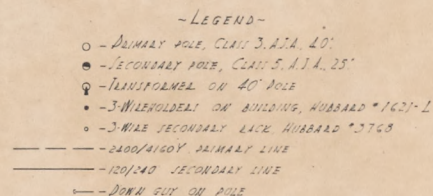 ~LEGEND~
- PRIMARY POLE, CLASS 3, A.S.A., 40'
- SECONDARY POLE, CLASS 5, A.S.A., 25'
- TRANSFORMER ON 40' POLE
- 3-WIREHOLDERS ON BUILDING, HUBBARD #1621-L
- 3-WIRE SECONDARY RACK, HUBBARD #3768
- 2400/4160Y PRIMARY LINE
- 120/240 SECONDARY LINE
- DOWN GUY ON POLE